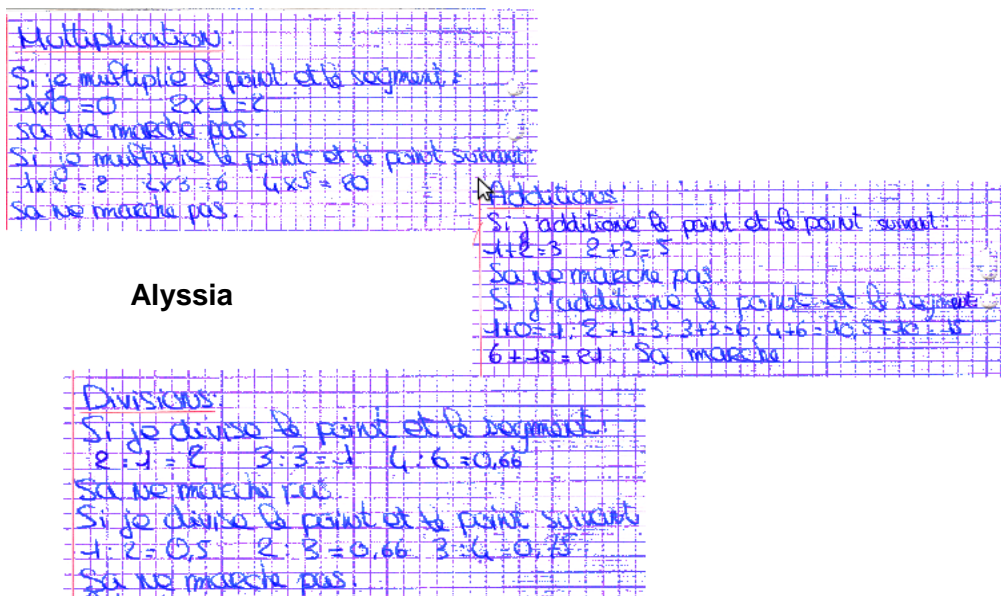 Multiplication:
Si je multiplie le point et le segment:
1x0=0 2x1=2
Sa ne marche pas.
Si je multiplie le point et le point suivant:
1x2=2 2x3=6 4x5=20
Sa ne marche pas.
Additions
Si j'additione le point et le point suivant:
1+2=3 2+3=5
Sa ne marche pas.
Si j'additione le point et le segment
1+0=1, 2+1=3, 3+3=6, 4+6=10, 5+10=15
6+15=21. Sa marche.
Alyssia
Divisions:
Si je divise le point et le segment:
2:1=2 3:3=1 4:6=0,66
Sa ne marche pas.
Si je divise le point et le point suivant
1:2=0,5 2:3=0,66 3:4=0,75
Sa ne marche pas.